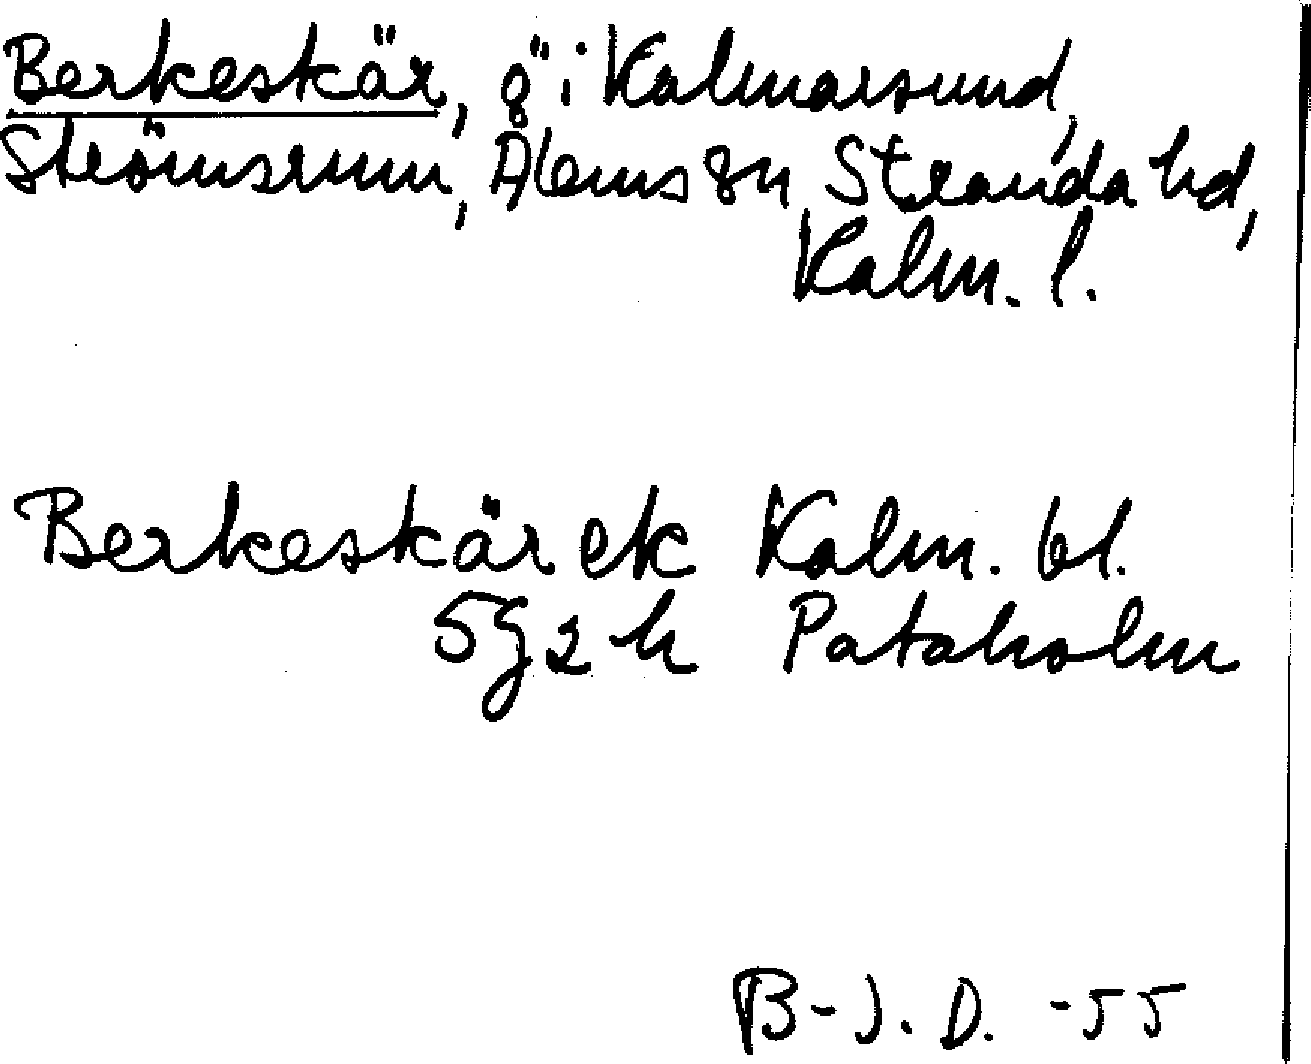 Berkeskär, ö i Kalmarsund,
Strömsrum, Ålems sn Stranda hd,
Kalm. l.
Berkeskär ek Kalm. bl.
5g2h Pataholm
B-J. D. -55